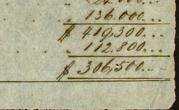 136,000...
$ 419,300...
112,800...
$ 306,500...